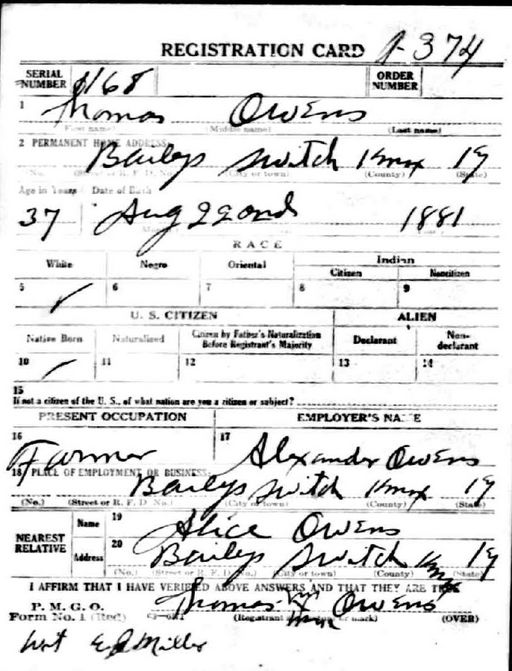 REGISTRATION CARD 1-374
SERIAL NUMBER 1168 ORDER NUMBER
1 Thomas Owens
(First name) (Middle name) (Last name)
2 PERMANENT HOME ADDRESS:
Baileys Switch Knox Ky
(No.) (Street or R. F. D. No.) (City or town) (County) (State)
Age in Years Date of Birth
37 Aug 22ond 1881
RACE
White Negro Oriental Indian
Citizen Noncitizen
5 ✓ 6 7 8 9
U. S. CITIZEN ALIEN
Native Born Naturalized Citizen by Father's Naturalization Before Registrant's Majority Declarant Non-declarant
10 ✓ 11 12 13 14
15
If not a citizen of the U. S., of what nation are you a citizen or subject?
PRESENT OCCUPATION EMPLOYER'S NAME
16 Farmer 17 Alexander Owens
18 PLACE OF EMPLOYMENT OR BUSINESS:
Baileys Switch Knox Ky
(No.) (Street or R. F. D. No.) (City or town) (County) (State)
NEAREST RELATIVE
Name 19 Alice Owens
Address 20 Baileys Switch Knox Ky
(No.) (Street or R. F. D. No.) (City or town) (County) (State)
I AFFIRM THAT I HAVE VERIFIED ABOVE ANSWERS AND THAT THEY ARE TRUE
P. M. G. O. Thomas X Owens
Form No. 1 (Red) (Registrant's signature or mark) (OVER)
Wit E J Miller